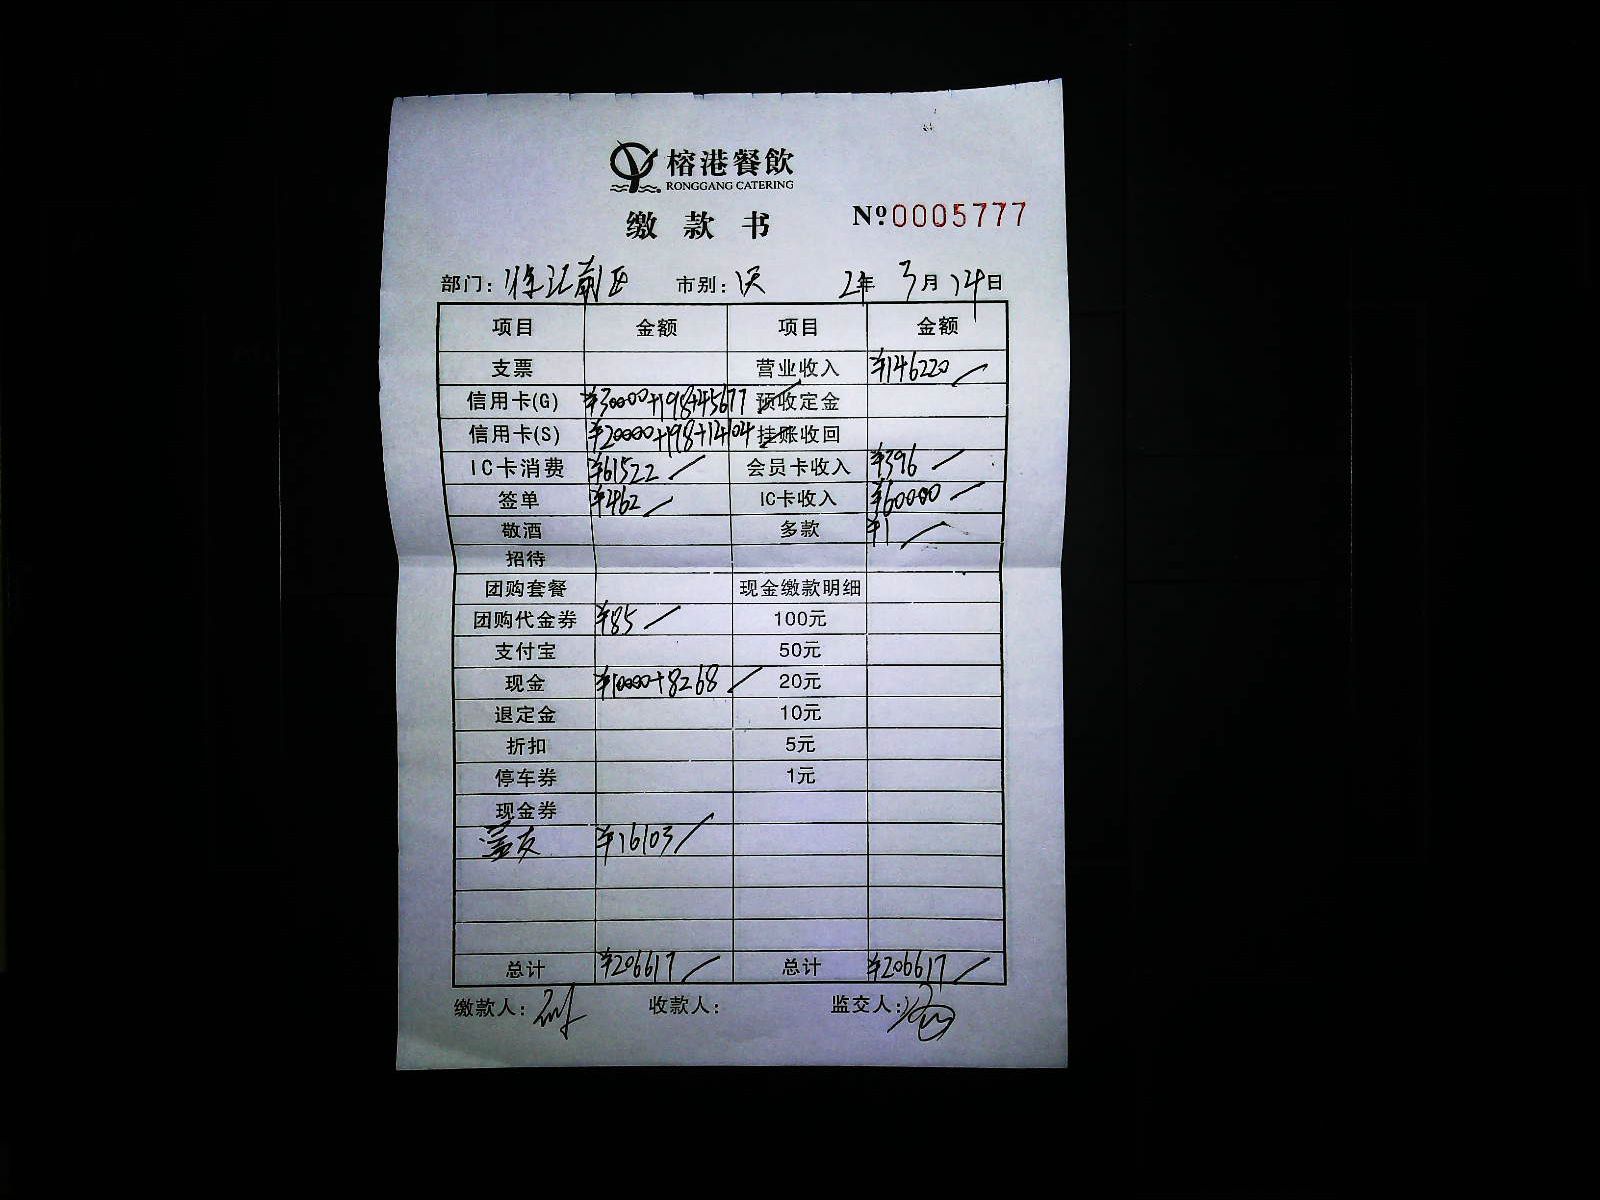 榕港餐飲
RONGGANG CATERING
缴款书 №0005777
部门: 徐汇前区 市别: 2年3月24日
项目 金额 项目 金额
支票 营业收入 ¥146220
信用卡(G) ¥30000+198+45677 预收定金
信用卡(S) ¥20000+198+14104 挂账收回
IC卡消费 ¥61522 会员卡收入 ¥396
签单 ¥462 IC卡收入 ¥60000
敬酒 多款 ¥1
招待
团购套餐 现金缴款明细
团购代金券 ¥85 100元
支付宝 50元
现金 ¥10000+8268 20元
退定金 10元
折扣 5元
停车券 1元
现金券
¥16103
总计 ¥206617 总计 ¥206617
缴款人: 收款人: 监交人: